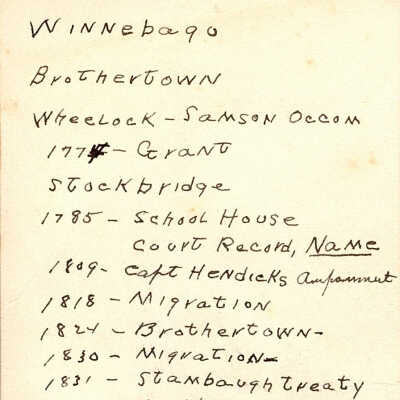 Winnebago
Brothertown
Wheelock - Samson Occom
1774 - Grant
Stockbridge
1785 - School House
Court Record, Name
1809- Capt Hendicks Aupaumut
1818 - Migration
1824 - Brothertown-
1830 - Migration-
1831 - Stambaugh treaty